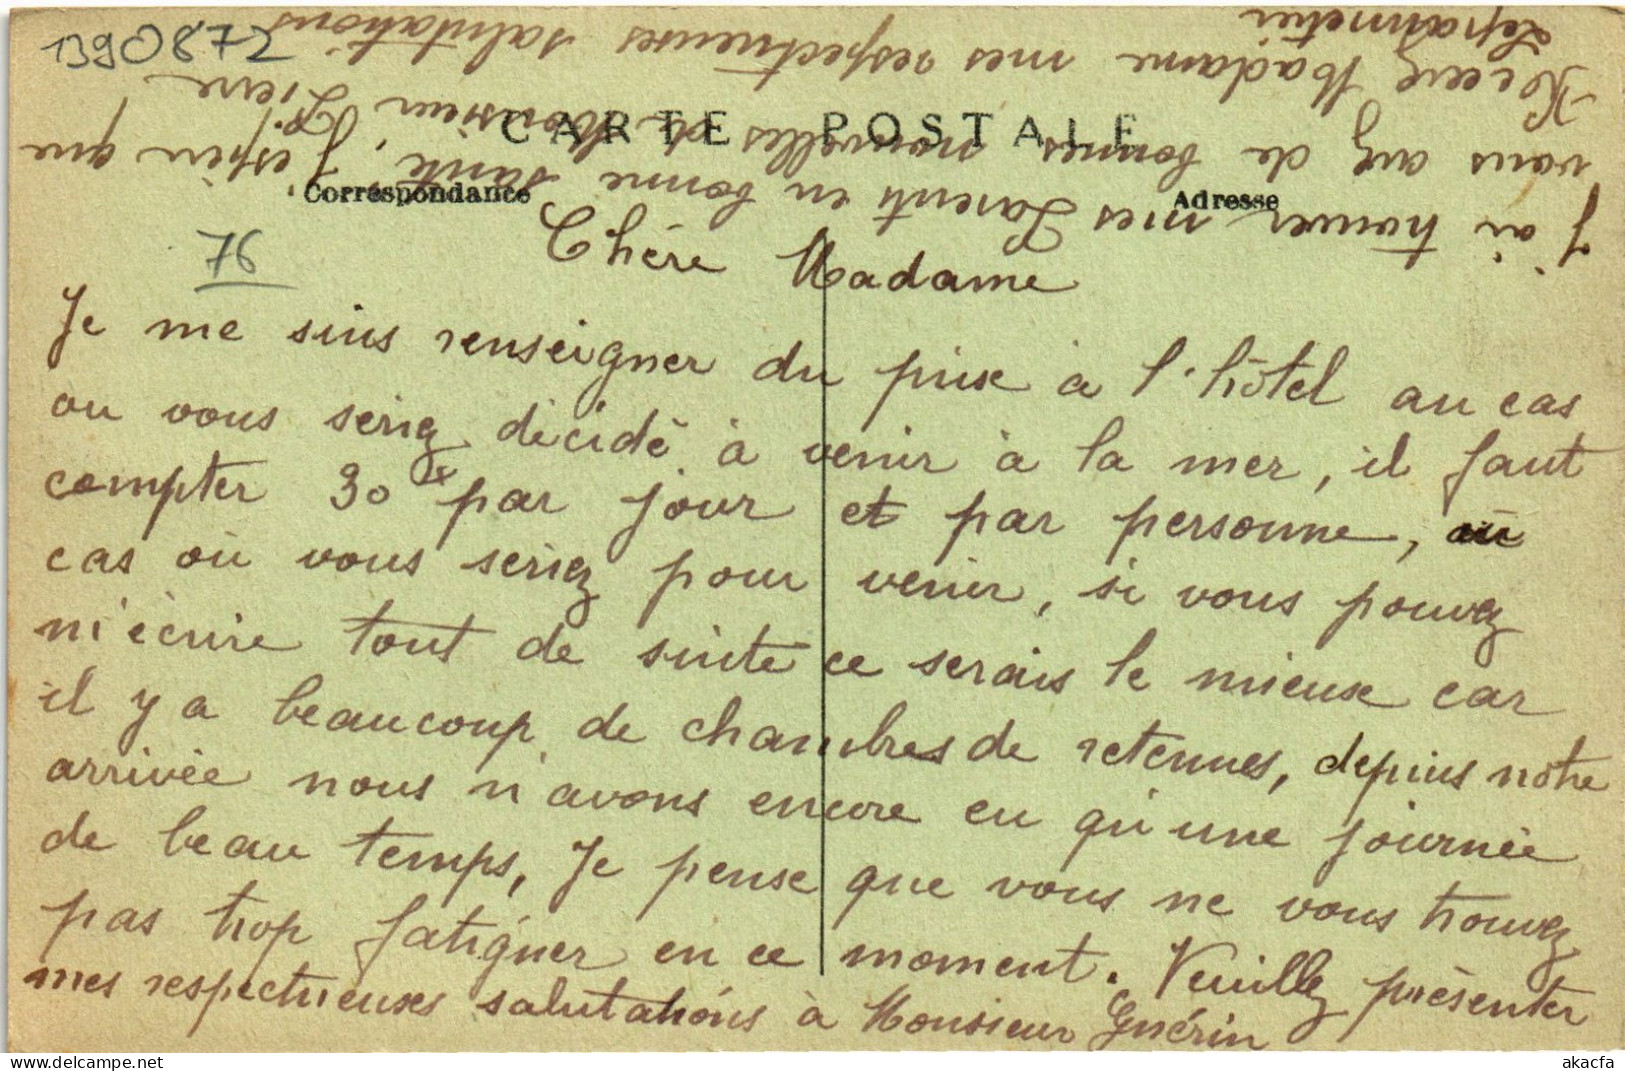 1390872
CARTE POSTALE
Correspondance
Adresse
76
Chère Madame
Je me suis renseigner du prix à l'hôtel au cas
ou vous seriez décidé à venir à la mer, il faut
compter 30 par jour et par personne, au
cas où vous seriez pour venir, si vous pouvez
m'écrire tout de suite ce serais le mieux car
il y a beaucoup de chambres de retenues, depuis notre
arrivée nous n'avons encore eu qu'une journée
de beau temps, Je pense que vous ne vous trouvez
pas trop fatiguer en ce moment. Veuillez présenter
mes respectueuses salutations à Monsieur Guérin
J'ai trouver mes Parents en bonne santé, J'espère que
vous avez de bonnes nouvelles de Monsieur Pierre
Recevez Madame mes respectueuses salutations
Leparmetier
akacfa